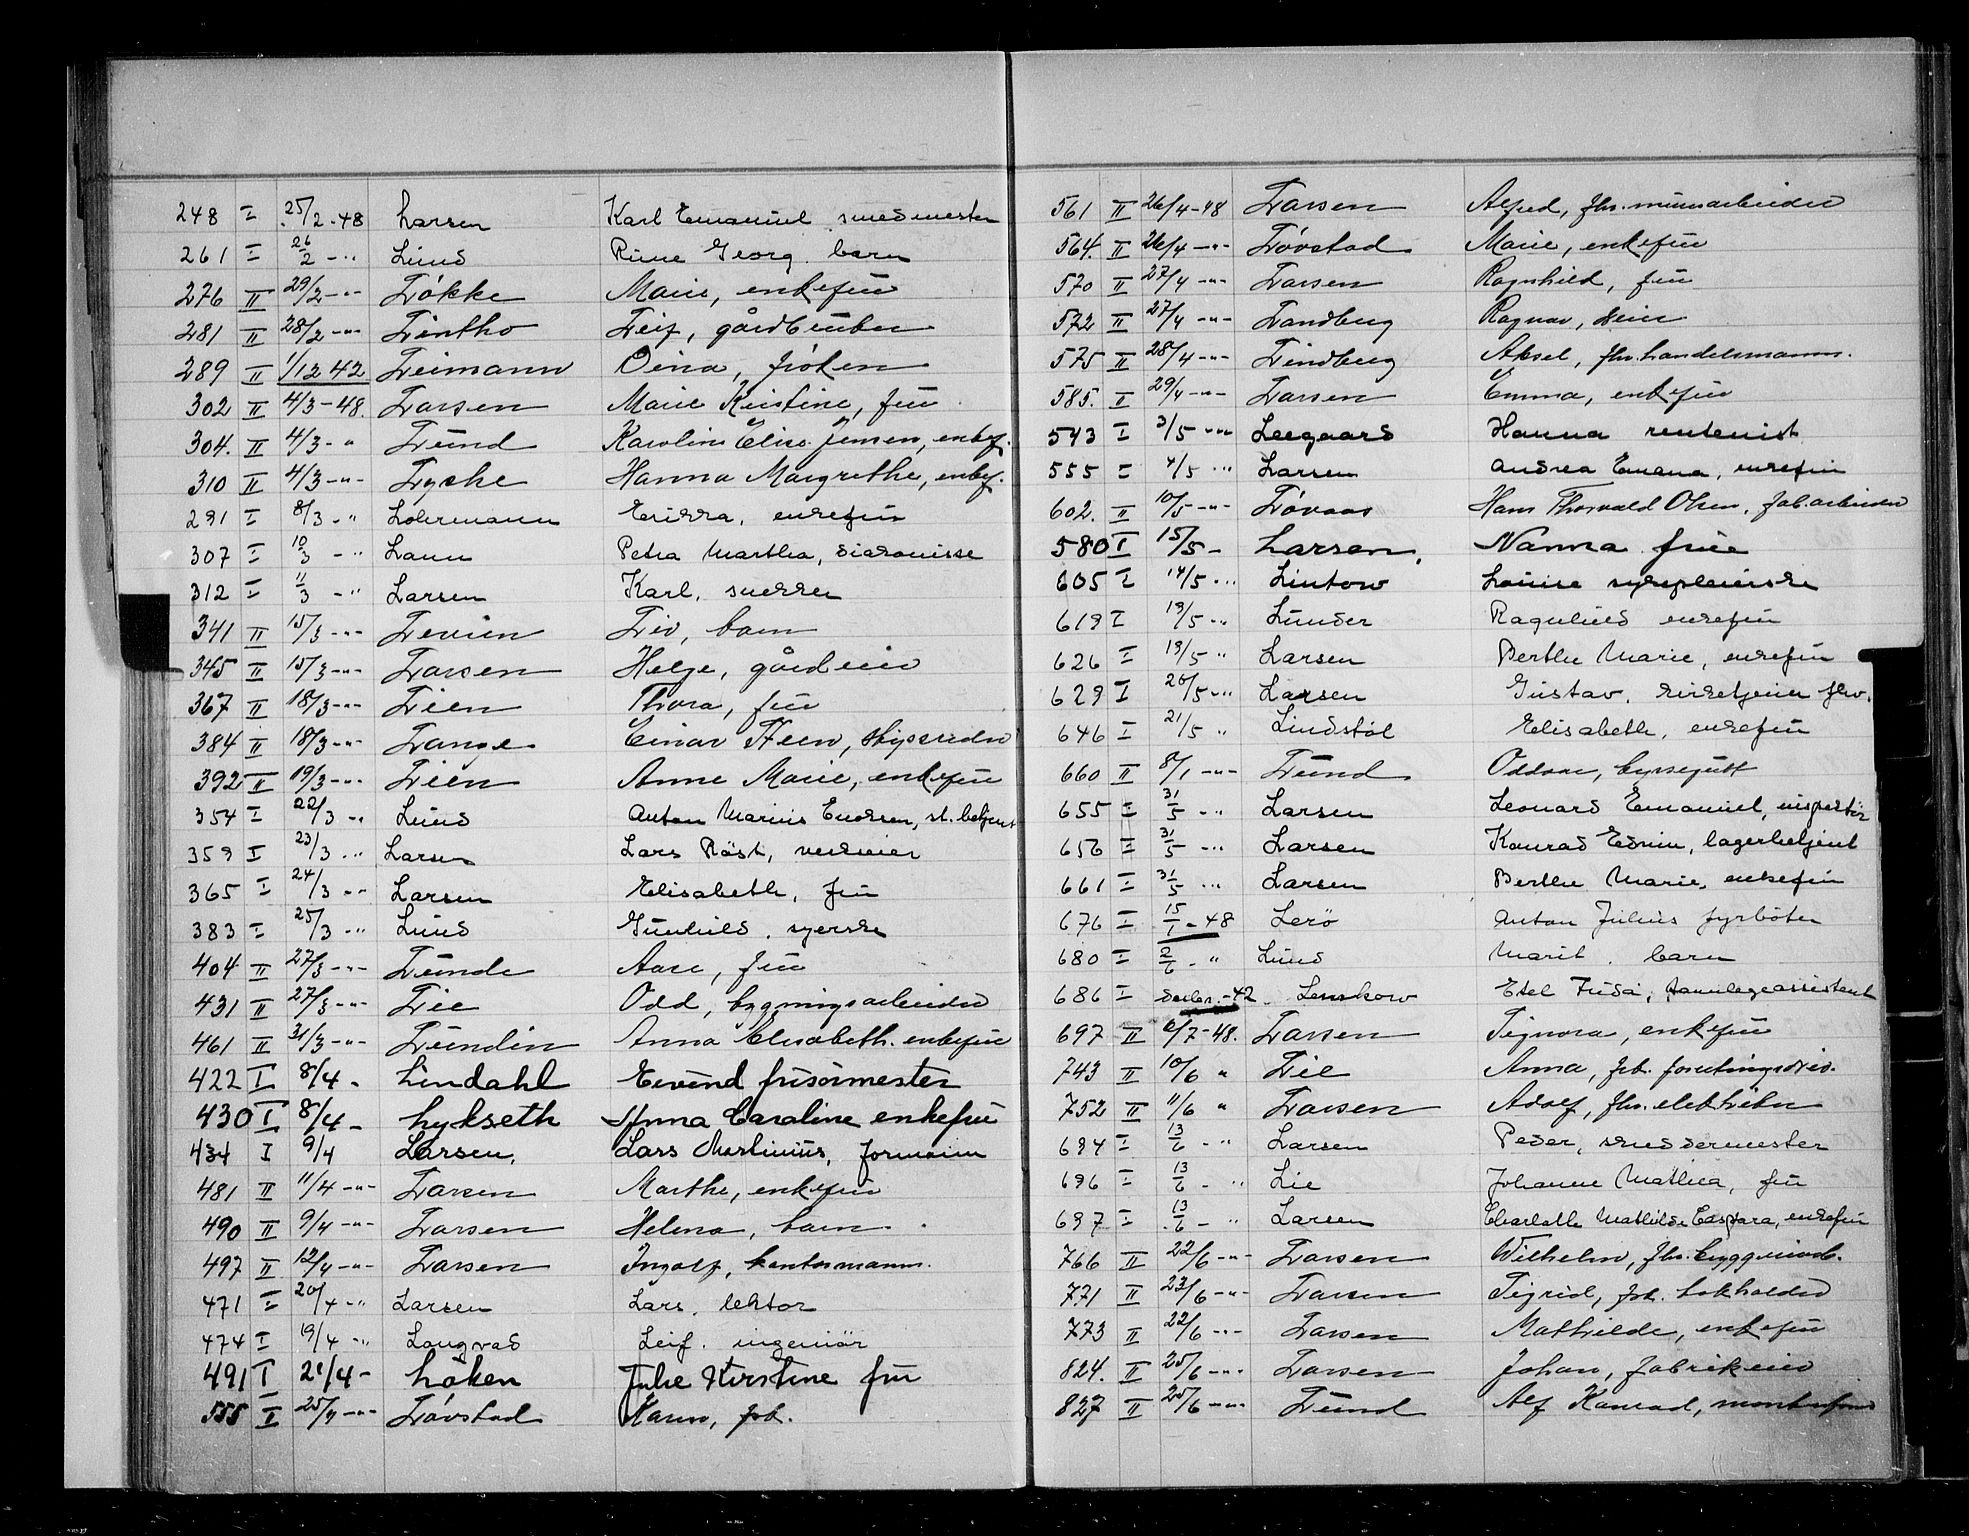 248 I 25/2-48 Larsen Karl Emanuel smedmester
261 I 26/2 -" Lund Rune Georg. barn
276 II 29/2 -"- Løkke Marie, enkefru
281 II 28/2 -"- Lintho Leif, gårdbruker
289 II 1/12 42 Leimann Oina, frøken
302 II 4/3-48. Larsen Marie Kristine, fru
304. II 4/3- " Lund Karoline Elise Jensen, enkef.
310 II 4/3-"- Lyche Hanna Margrethe, enkef.
291 I 8/3 -" Lohrmann Erikka, enkefru
307 I 10/3 -" Laun Petra Martha, diakonisse
312 I 11/3 -" Larsen Karl, snekker
341 II 15/3 -"- Levien Liv, barn
345 II 15/3-"- Larsen Helge, gårdeier
367 II 18/3-"- Lien Thora, fru
384 II 18/3-"- Lange Einar Steen, skipsreder
392 II 19/3-"- Lien Anne Marie, enkefru
354 I 22/3 -" Lund Anton Marius Knudsen, st.betjent
359 I 23/3 -" Larsen Lars Röst, verkeier
365 I 24/3 -" Larsen Elisabeth, fru
383 I 25/3 -" Lund Gunhild, syerske
404 II 27/3 -"- Lunde Aase, fru
431 II 27/3-"- Lie Odd, bygningsarbeider
461 II 31/3-"- Lundin Anna Elisabeth. enkefru
422 I 8/4 - Lindahl Eivind frisörmester
430 I 8/4 - Lykseth Anna Caroline enkefru
434 I 9/4 Larsen, Lars Martinius, formann
481 II 11/4 -"- Larsen Marthe, enkefru
490 II 9/4 -"- Larsen Helena, barn
497 II 12/4 -"- Larsen Ingolf, kontormann.
471 I 20/4 -" Larsen Lars, lektor
474 I 19/4 -" Langvad Leif. ingeniör
491 I 21/4 - Löken Julie Kirstine fru
555 I 25/4 -"- Løvstad Karen, frk.
561 II 26/4-48 Larsen Alfred, fhv. murarbeider
564. II 26/4 -"- Løvstad Marie, enkefru
570 II 27/4 -"- Larsen Ragnhild, fru
572 II 27/4 -"- Landberg Ragnar, eier
575 II 28/4 -"- Lindberg Aksel, fhv. handelsmann.
585. II 29/4 -"- Larsen Emma, enkefru
543 I 3/5 -"- Leegaard Hanna rentenist
555 I 4/5 -" Larsen Andrea Emana, enkefru
602. II 10/5 -"- Løvaas Hans Thorvald Olsen, fab.arbeider
580 I 15/5 - Larsen, Nanna frue
605 I 14/5 -" Lintow Louise sykepleierske
619 I 19/5 -" Lunder Ragnhild enkefru
626 I 19/5 " Larsen Berthe Marie, enkefru
629 I 20/5 -" Larsen Gustav, kirketjener fhv.
646 I 21/5 " Lindstöl Elisabeth, enkefru
660 II 8/1 -"- Lund Oddvar, byssegutt
655 I 31/5 -" Larsen Leonard Emanuel, inspektör
656 I 31/5 -" Larsen Konrad Edvin, lagerbetjent
661 I 31/5 -" Larsen Berthe Marie, enkefru
676 I 15/1 - 48 Lerö Anton Julius fyrböter
680 I 2/6 -" Lund Marit, barn
686 I desbr. -42. Lenskow Edel Frida, tannlegeassistent
697 II 6/7-48. Larsen Signora, enkefru
743 II 10/6 " Lie Anna, frk. forretningsdriv.
752 II 11/6 " Larsen Adolf, fhv. elektriker
694 I 13/6 -" Larsen Peder, skreddermester
696 I 13/6 -" Lie Johanne Mathea, fru
697 I 13/6 -" Larsen Charlotte Mathilde Caspara, enkefru
766 II 22/6 -"- Larsen Wilhelm, fhv. bryggeriarb.
771 II 23/6 -"- Larsen Sigrid, frk. bokholder
773 II 22/6 -"- Larsen Mathilde, enkefru
824. II 25/6 -"- Larsen Johan, fabrikeier
827 II 25/6 -"- Lund Alf Konrad,